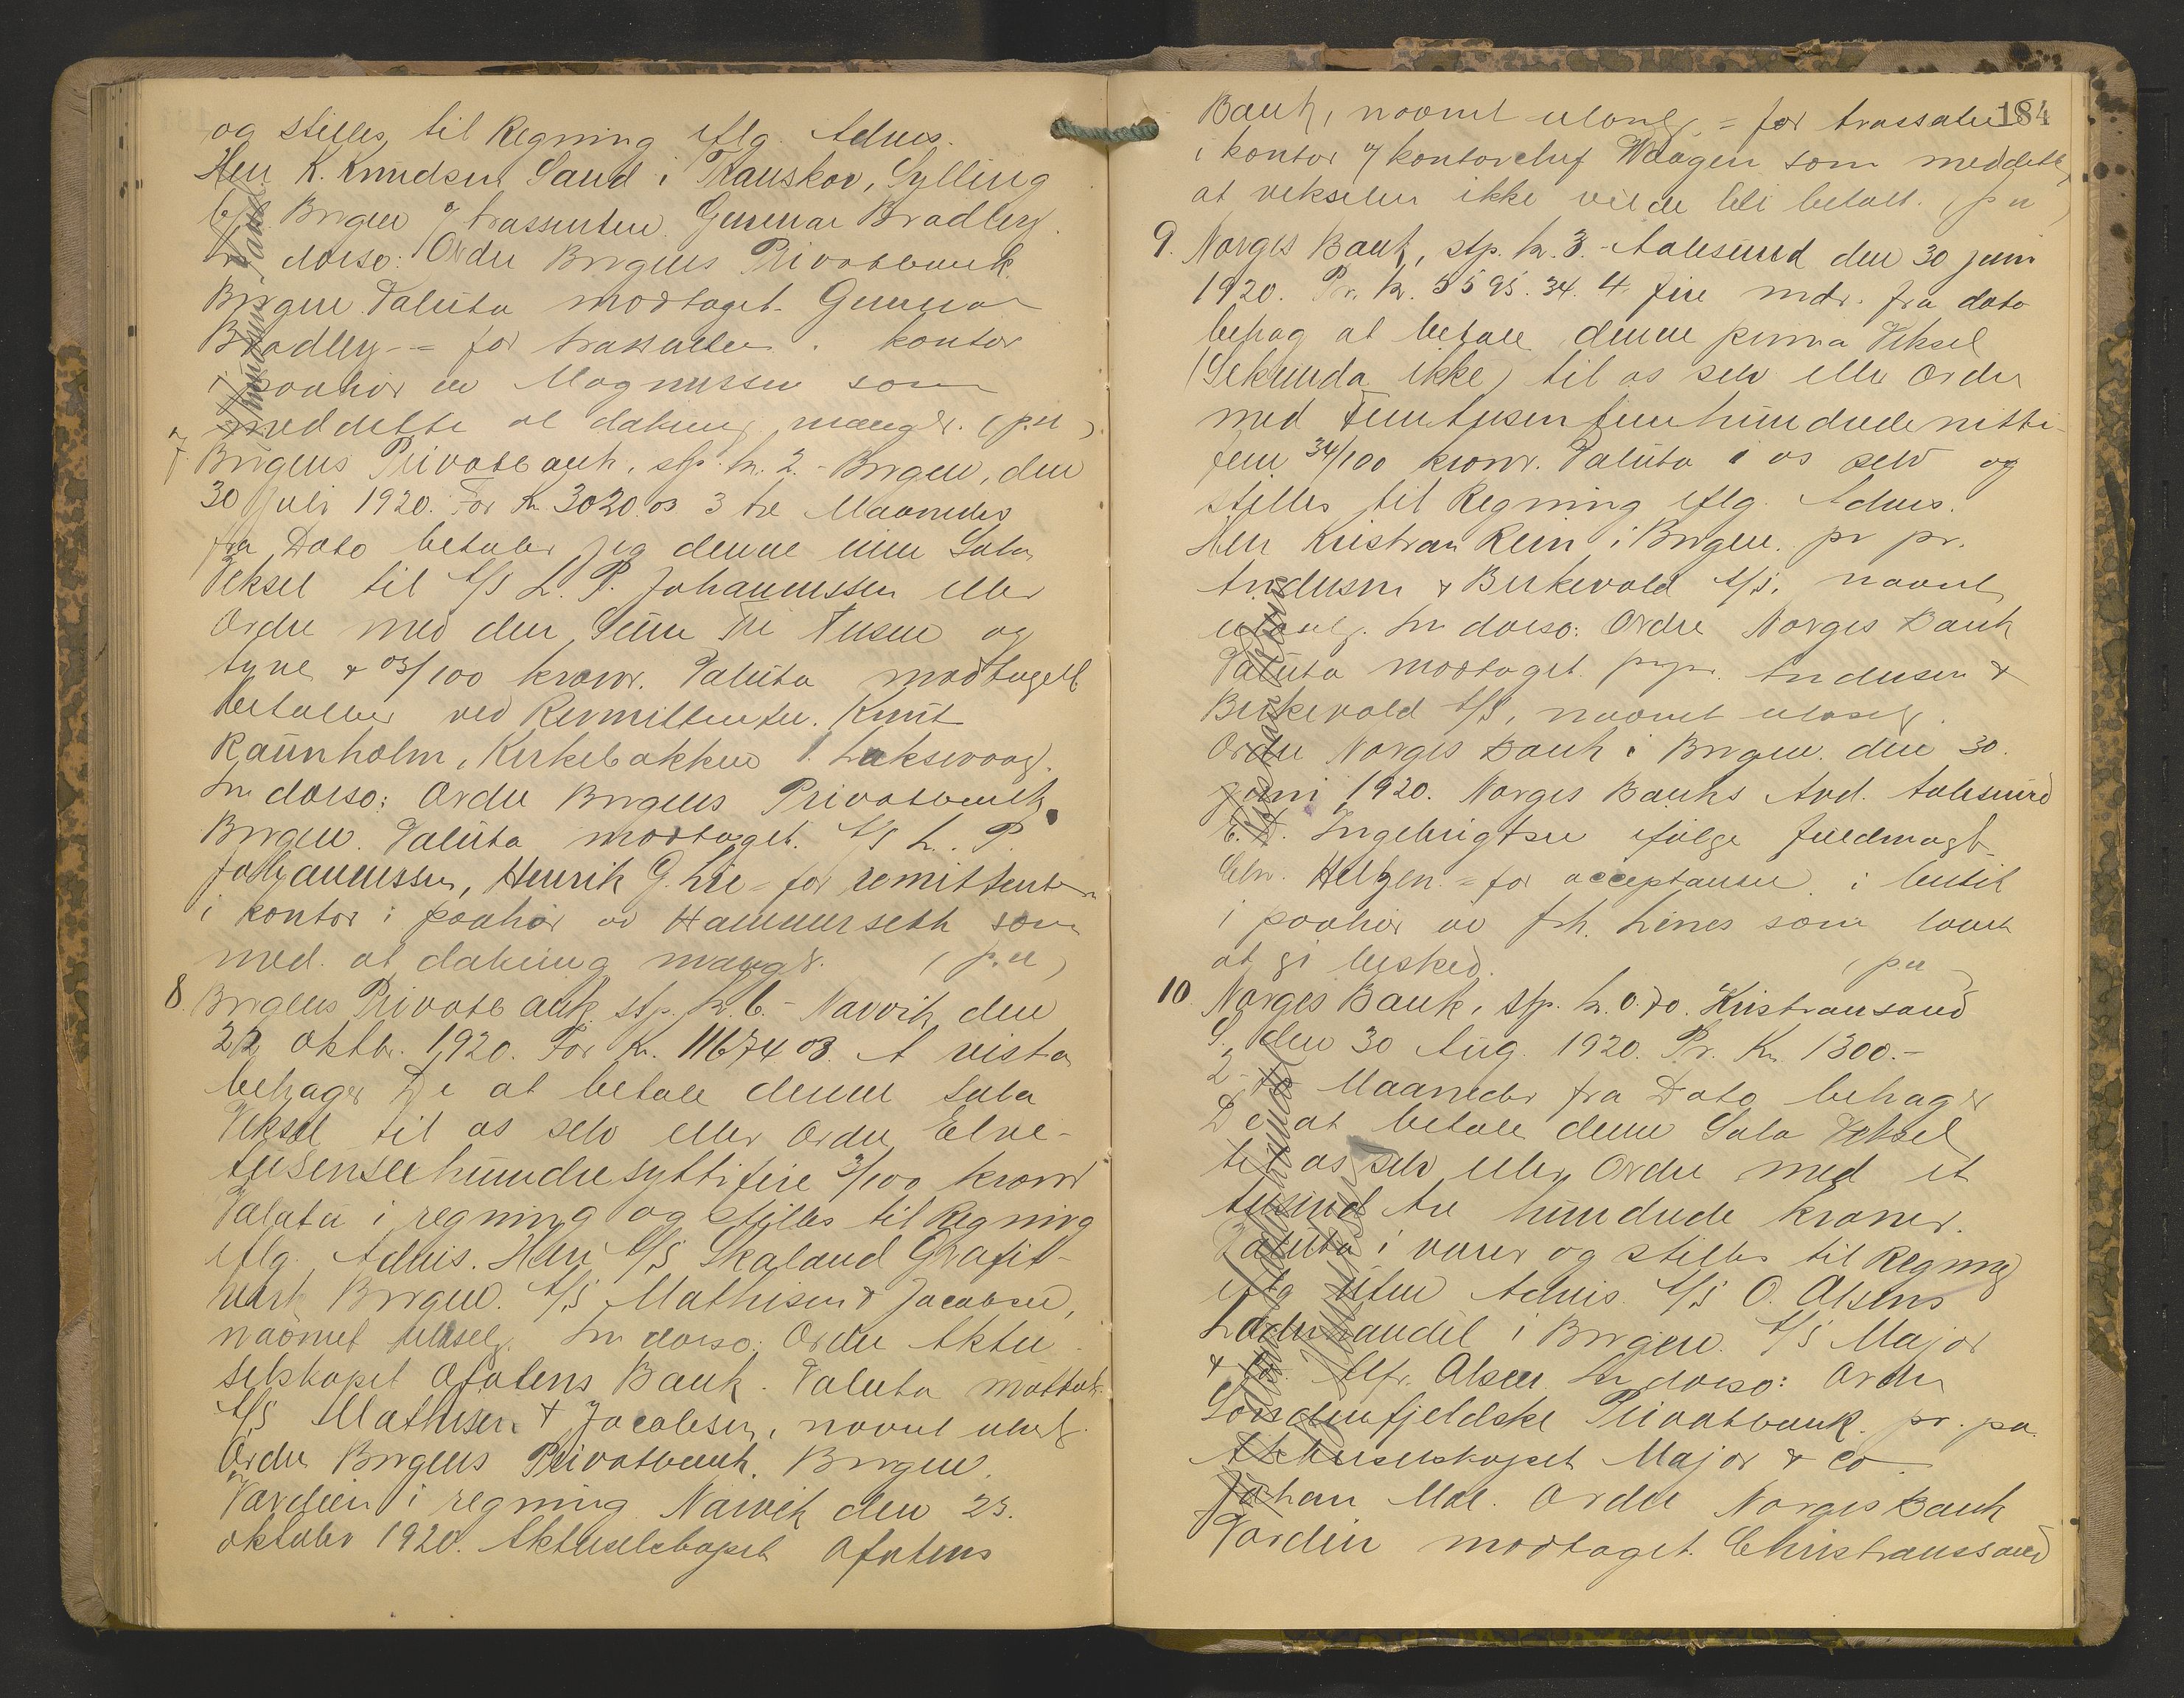 og stilles til Regning iflg. Advis.
Herr K. Knudsen Sand i Transkov, Sylling
Bergen trassenten Gunnar Bradley.
In dorso: Ordre Bergens Privatbank
Bergen Valuta modtaget. Gunnar
Bradley = for trassaten i kontor
i paahør av Magnussen som
meddelte at dækning mangler. (p.u)
7. Bergens Privatbank, stp. kr. 2.- Bergen, den
30 Juli 1920. For Kr. 3020.03 3 tre Maaneder
fra Dato betaler jeg denne min Sola
Veksel til A/S L. P. Johannessen eller
Ordre med den Sum Tre Tusen og
tyve & 03/100 kroner. Valuta modtaget
betalbar ved Remittenten. Knut
Raunholm, Kirkebakken Laksevaag.
In dorso: Ordre Bergens Privatbank
Bergen. Valuta modtaget. A/S L. P.
Johannessen, Henrik G. Lie = for remittenten
i kontor i paahør av Hammerseth som
med. at dækning mangler. (p.u)
8. Bergens Privatbank stp. kr. 6.- Narvik den
22 oktbr. 1920. For Kr. 11674 03. A vista
behager De at betale denne Sola
Veksel til os selv eller Ordre Elve-
tusensekshundresyttifire 3/100 kroner
Valuta i regning og stilles til Regning
iflg. Advis. Herr A/S Skaland Grafit-
verk Bergen. A/S Mathisen & Jacobsen,
navnet ulæselg. In dorso: Ordre Aktie-
selskapet Ofotens Bank. Valuta mottat.
A/S Mathisen & Jacobsen, navnet ulæs.
Ordre Bergens Privatbank, Bergen.
Værdien i regning Narvik den 23.
oktober 1920. Aktieselskapet Ofotens
184
Bank, navnet ulæselg. = for trassaten
i kontor kontorchef Waagen som meddelte
at vekselen ikke vilde bli betalt. (p u)
9. Norges Bank, stp. kr. 3.- Aalesund den 30 juni
1920. Pr. Kr. 5595.34. 4 fire mdr. fra dato
behag at betale denne prima Veksel
(Sekunda ikke) til os selv eller Ordre
med Femtusenfemhundredenitti-
fem 34/100 kroner. Valuta i os selv og
stilles til Regning iflg. Advis.
Herr Kristian Rein i Bergen. pr pr.
Andersen & Birkevold A/S. navnet
ulæselg. In dorso: Ordre Norges Bank
Valuta modtaget pr pr. Andersen &
Birkevold A/S, navnet ulæselg.
Ordre Norges Bank i Bergen. den 30.
juni 1920. Norges Banks Avd. Aalesund
Ingebrigtsen ifølge fuldmagt
= for acceptanten. i butik
i paahør av frk. Lines som lovet
at gi besked. (p u)
10. Norges Bank, stp. kr. 0.70. Kristiansand
S. den 30 Aug. 1920. Pr. Kr. 1300.-
2 to Maaneder fra Dato behager
De at betale denne Sola Veksel
til os selv eller Ordre med et
tusind tre hundrede kroner.
Valuta i varer og stilles til Regning
iflg uten Advis. A/S O. Olsens
Læderhandel i Bergen. A/S Major
& Co. Alfr. Olsen. In dorso: Ordre
Søndenfjeldske Privatbank. pr. pa.
Aktieselskapet Major & Co
Johan Ordre Norges Bank
Værdien modtaget. Christianssand